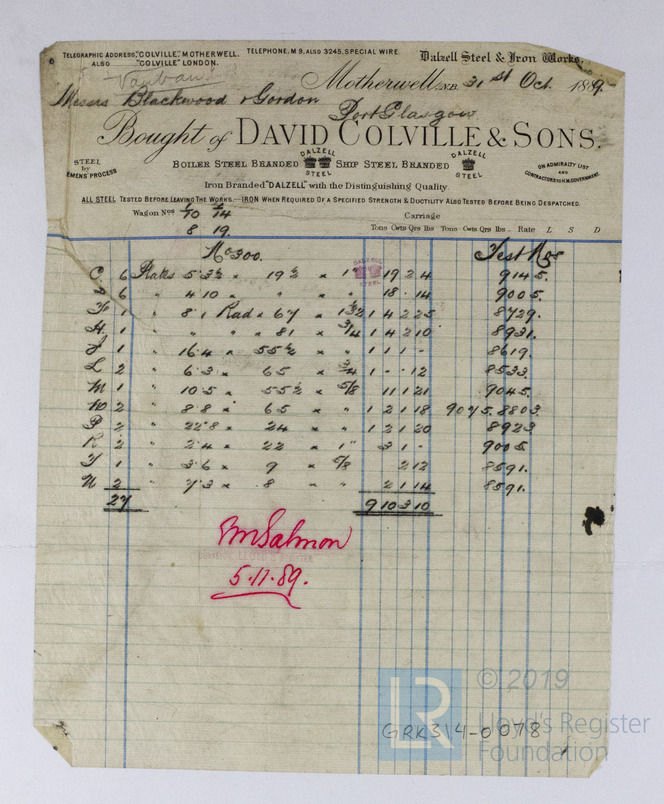 TELEGRAPHIC ADDRESS, "COLVILLE", MOTHERWELL.
ALSO "COLVILLE" LONDON.
TELEPHONE, M 9, ALSO 3245, SPECIAL WIRE.
Dalzell Steel & Iron Works,
Vauban
Motherwell, N.B. 31st Oct. 1889.
Messrs Blackwood & Gordon
Port Glasgow
Bought of DAVID COLVILLE & SONS.
STEEL by SIEMENS PROCESS
BOILER STEEL BRANDED DALZELL STEEL SHIP STEEL BRANDED DALZELL STEEL
ON ADMIRALTY LIST AND CONTRACTORS TO H.M. GOVERNMENT.
Iron Branded "DALZELL" with the Distinguishing Quality
ALL STEEL TESTED BEFORE LEAVING THE WORKS.—IRON WHEN REQUIRED OF A SPECIFIED STRENGTH & DUCTILITY ALSO TESTED BEFORE BEING DESPATCHED.
Wagon Nos 70 14
8 19.
Carriage
Tons Cwts Qrs lbs Tons Cwts Qrs lbs Rate L S D
No 300. Test Nos
6 Plates 5·3½ × 19½ × 1" 19 2 4 9145.
6 " 4·10 " " " 18 · 14 9005.
1 " 8·1 Rad × 67 × 1 4 2 25 8729.
H 1 " " " × 81 × 3/4 1 4 2 10 8931.
J 1 " 16·4 × 55½ × " 1 1 1 - 8619.
L 2 " 6·3 × 65 × 3/4 1 - · 12 8533.
M 1 " 10·5 × 55½ × 5/8 11 1 21 9045.
2 " 8·8 × 65 × " 1 2 1 18 9075. 8803.
P 2 " 22·8 × 24 × " 1 2 1 20 8923
R 2 " 2·4 × 22 × 1" 3 1 - 9005.
1 " 3·6 × 9 × 5/8 2 12 8591.
2 " 7·3 × 8 × " 2 1 14 8591.
27 9 10 3 10
Salmon
5·11·89.
© 2019
LR Lloyd's Register
Foundation
GRK3\4-0078